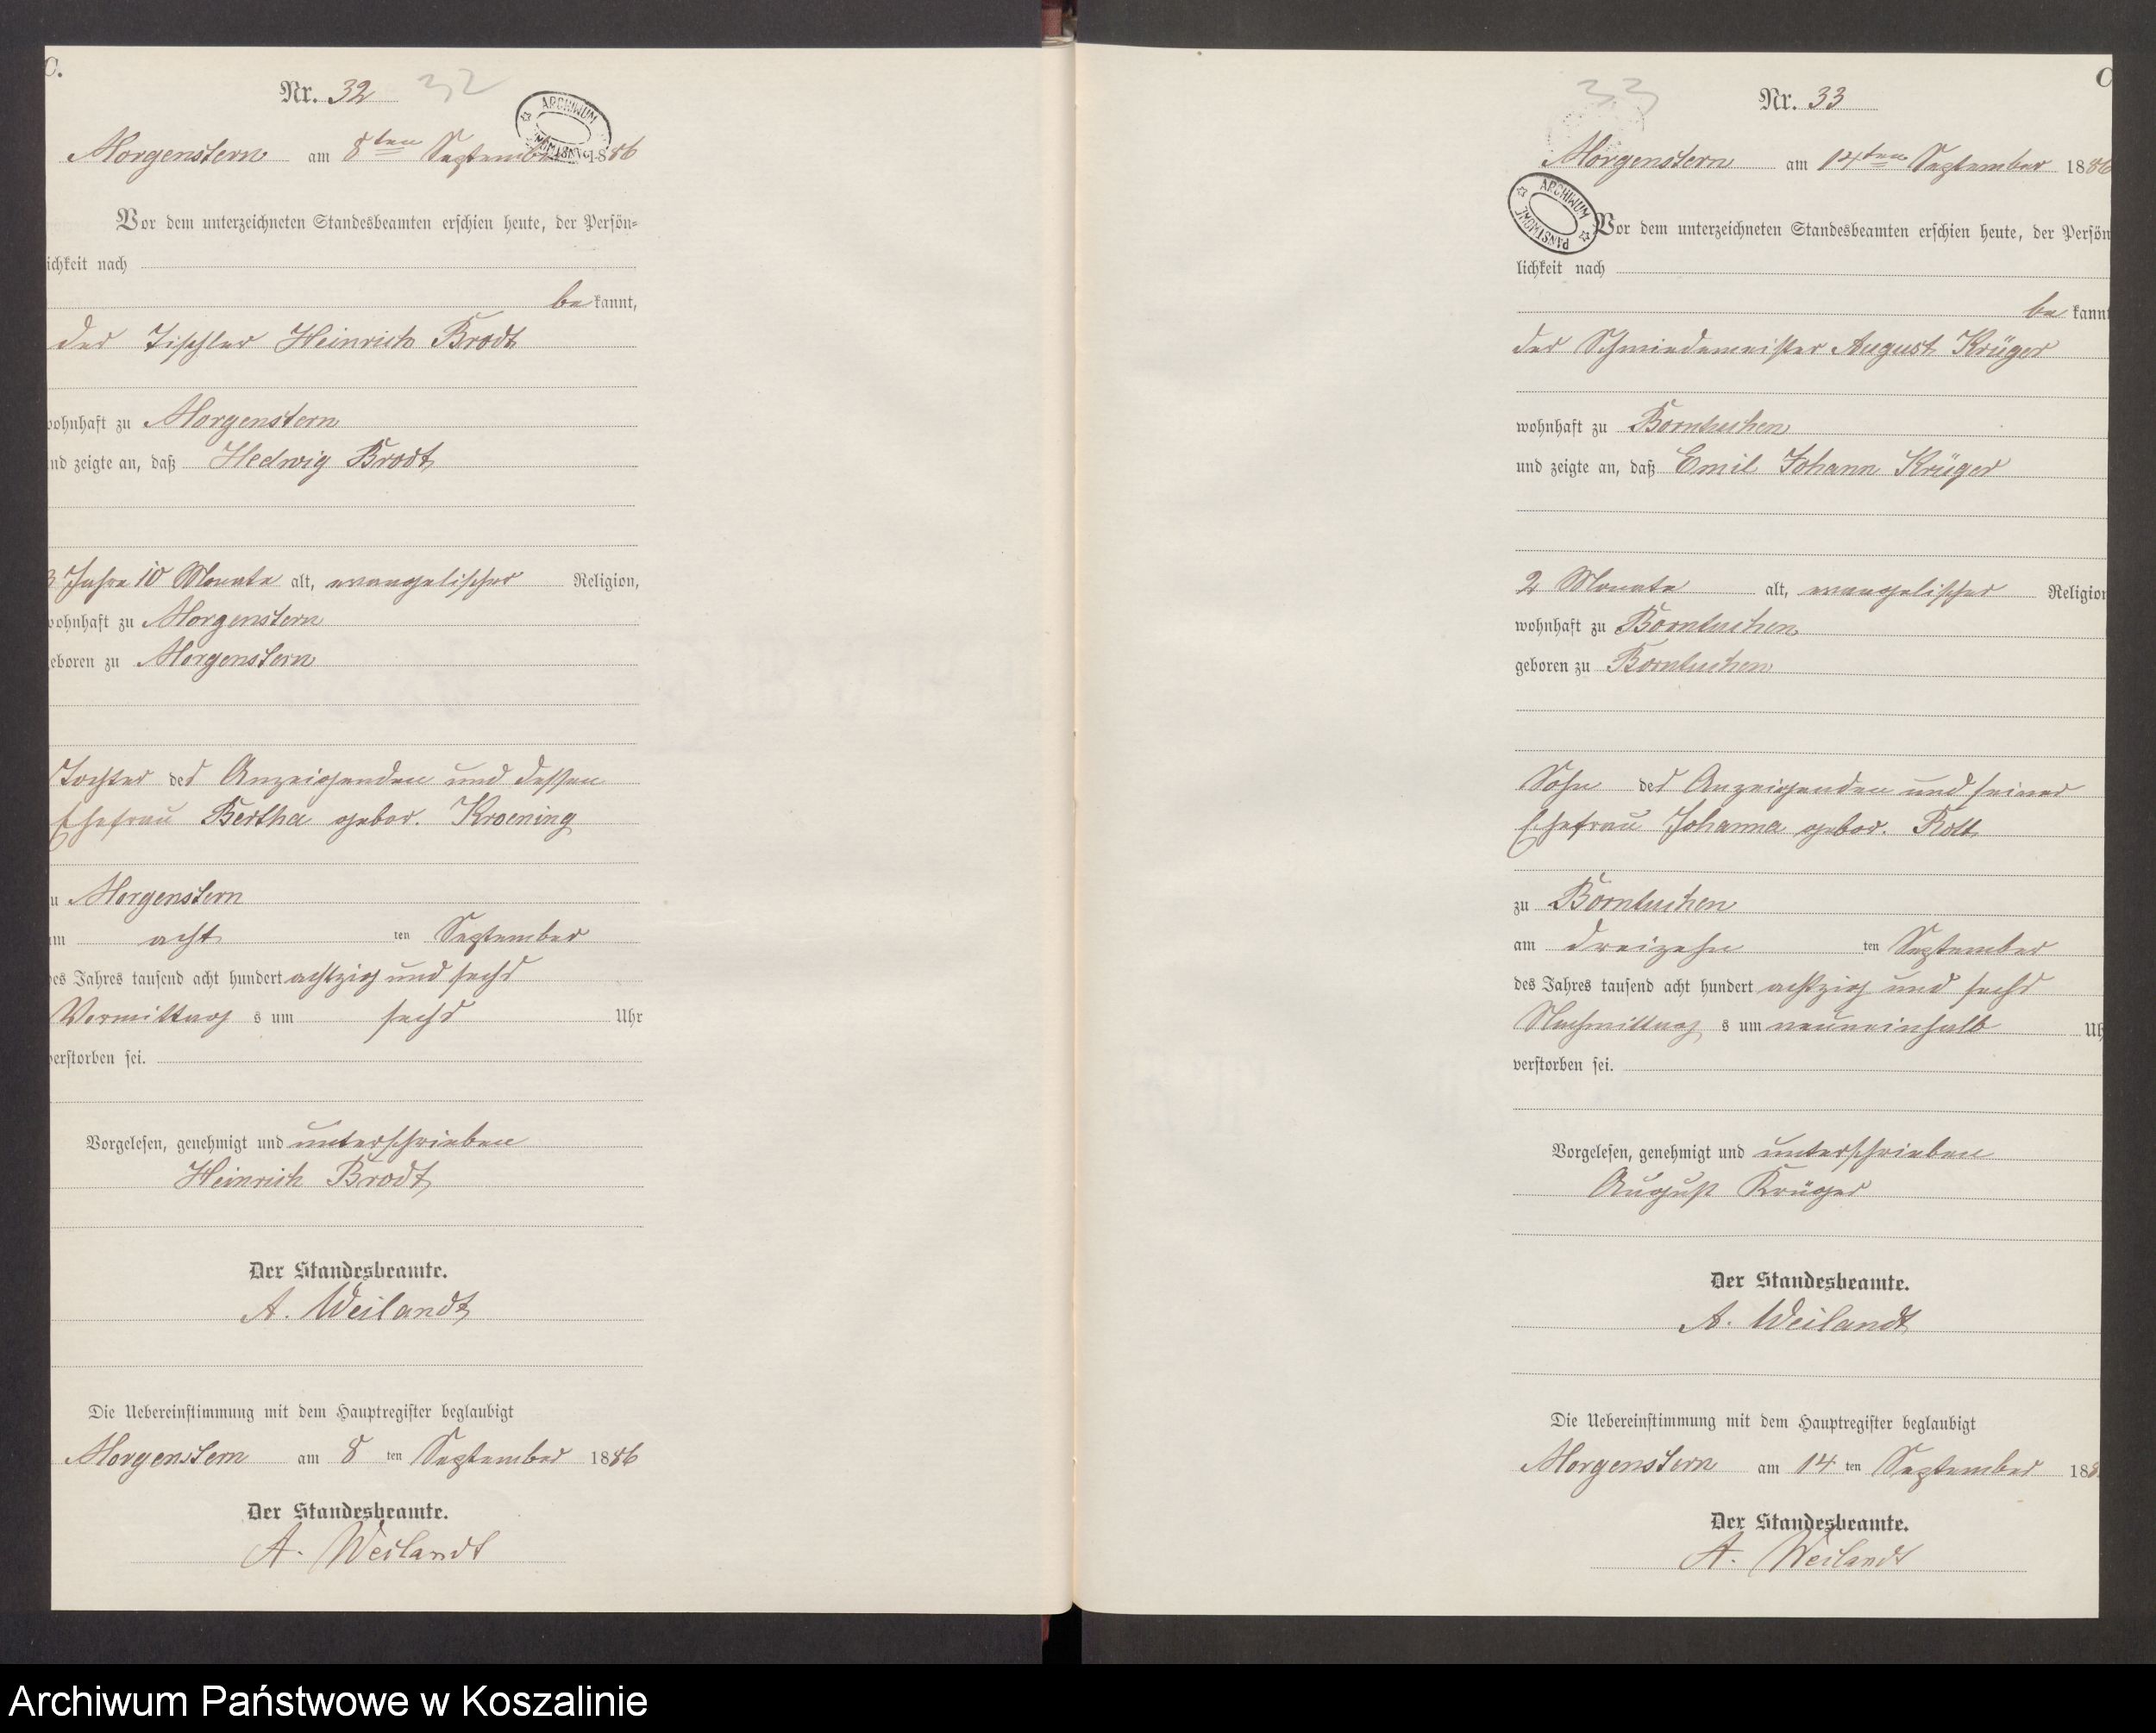 C.
Nr. 32 32
ARCHIWUM PAŃSTWOWE
Morgenstern am 8ten September 1886
Vor dem unterzeichneten Standesbeamten erschien heute, der Persön-
ichkeit nach
be kannt,
der Tischler Heinrich Brodt
wohnhaft zu Morgenstern
nd zeigte an, daß Hedwig Brodt
3 Jahre 10 Monate alt, evangelischer Religion,
wohnhaft zu Morgenstern
eboren zu Morgenstern
Tochter des Anzeigenden und dessen
Ehefrau Bertha gebor. Kroening
u Morgenstern
am acht ten September
des Jahres tausend acht hundert achtzig und sechs
Vormittag s um sechs Uhr
verstorben sei.
Vorgelesen, genehmigt und unterschrieben
Heinrich Brodt
Der Standesbeamte.
A. Weilandt
Die Uebereinstimmung mit dem Hauptregister beglaubigt
Morgenstern am 8 ten September 1886
Der Standesbeamte.
A. Weilandt
C
33 Nr. 33
Morgenstern am 14ten September 1886
ARCHIWUM PAŃSTWOWE
Vor dem unterzeichneten Standesbeamten erschien heute, der Persön
lichkeit nach
be kannt
der Schmiedemeister August Krüger
wohnhaft zu Borntuchen
und zeigte an, daß Emil Johann Krüger
2 Monate alt, evangelischer Religion
wohnhaft zu Borntuchen
geboren zu Borntuchen
Sohn des Anzeigenden und seiner
Ehefrau Johanna gebor. Rott
zu Borntuchen
am dreizehn ten September
des Jahres tausend acht hundert achtzig und sechs
Nachmittag s um neuneinhalb Uh
verstorben sei.
Vorgelesen, genehmigt und unterschrieben
August Krüger
Der Standesbeamte.
A. Weilandt
Die Uebereinstimmung mit dem Hauptregister beglaubigt
Morgenstern am 14 ten September 188
Der Standesbeamte.
A. Weilandt
Archiwum Państwowe w Koszalinie